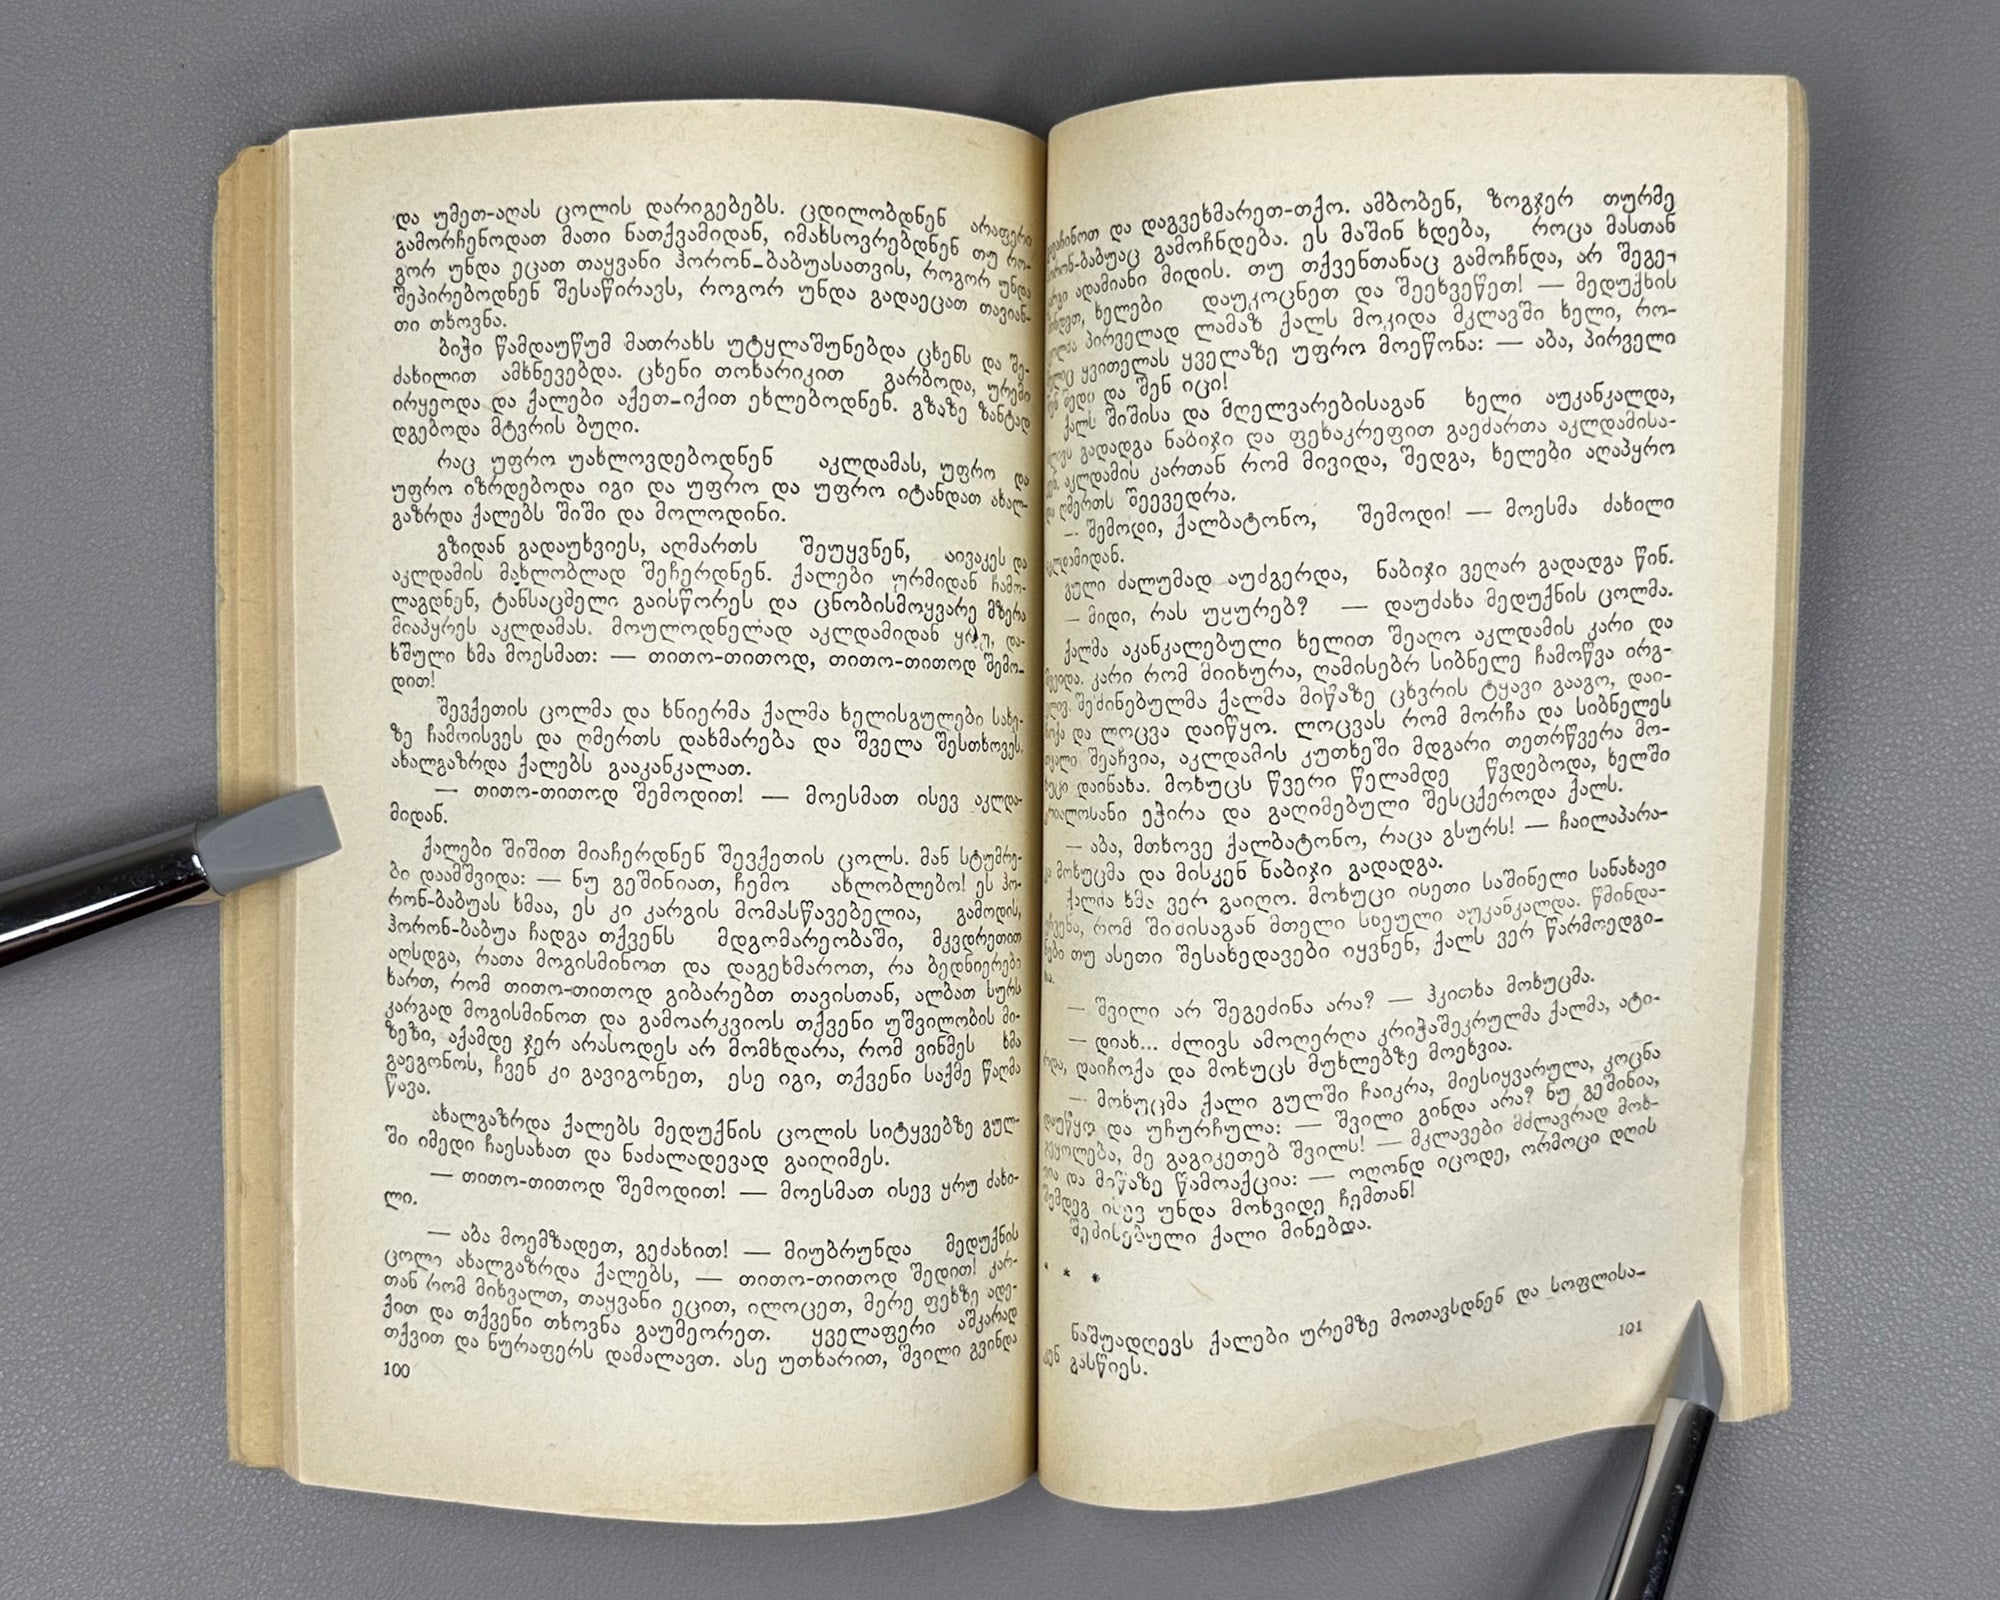 და უმეთ-აღას ცოლის დარიგებებს. ცდილობდნენ არაფერი
გამორჩენოდათ მათი ნათქვამიდან, იმახსოვრებდნენ თუ რო-
გორ უნდა ეცათ თაყვანი ჰორონ-ბაბუასათვის, როგორ უნდა
შეპირებოდნენ შესაწირავს, როგორ უნდა გადაეცათ თავიან-
თი თხოვნა.
ბიჭი წამდაუწუმ მათრახს უტყლაშუნებდა ცხენს და შე-
ძახილით ამხნევებდა. ცხენი თოხარიკით გარბოდა, ურემი
ირყეოდა და ქალები აქეთ-იქით ეხლებოდნენ. გზაზე ზანტად
დგებოდა მტვრის ბუღი.
რაც უფრო უახლოვდებოდნენ აკლდამას, უფრო და
უფრო იზრდებოდა იგი და უფრო და უფრო იტანდათ ახალ-
გაზრდა ქალებს შიში და მოლოდინი.
გზიდან გადაუხვიეს, აღმართს შეუყვნენ, აივაკეს და
აკლდამის მახლობლად შეჩერდნენ. ქალები ურმიდან ჩამო-
ლაგდნენ, ტანსაცმელი გაისწორეს და ცნობისმოყვარე მზერა
მიაპყრეს აკლდამას. მოულოდნელად აკლდამიდან ყრუ, და-
ხშული ხმა მოესმათ: — თითო-თითოდ, თითო-თითოდ შემო-
დით!
შევქეთის ცოლმა და ხნიერმა ქალმა ხელისგულები სახე-
ზე ჩამოისვეს და ღმერთს დახმარება და შველა შესთხოვეს,
ახალგაზრდა ქალებს გააკანკალათ.
— თითო-თითოდ შემოდით! — მოესმათ ისევ აკლდა-
მიდან.
ქალები შიშით მიაჩერდნენ შევქეთის ცოლს. მან სტუმრე-
ბი დაამშვიდა: — ნუ გეშინიათ, ჩემო ახლობლებო! ეს ჰო-
რონ-ბაბუას ხმაა, ეს კი კარგის მომასწავებელია, გამოდის,
ჰორონ-ბაბუა ჩადგა თქვენს მდგომარეობაში, მკვდრეთით
აღსდგა, რათა მოგისმინოთ და დაგეხმაროთ, რა ბედნიერები
ხართ, რომ თითო-თითოდ გიბარებთ თავისთან, ალბათ სურს
კარგად მოგისმინოთ და გამოარკვიოს თქვენი უშვილობის მი-
ზეზი, აქამდე ჯერ არასოდეს არ მომხდარა, რომ ვინმეს ხმა
გაეგონოს, ჩვენ კი გავიგონეთ, ესე იგი, თქვენი საქმე წაღმა
წავა.
ახალგაზრდა ქალებს მედუქნის ცოლის სიტყვებზე გულ-
ში იმედი ჩაესახათ და ნაძალადევად გაიღიმეს.
— თითო-თითოდ შემოდით! — მოესმათ ისევ ყრუ ძახი-
ლი.
— აბა მოემზადეთ, გეძახით! — მიუბრუნდა მედუქნის
ცოლი ახალგაზრდა ქალებს, — თითო-თითოდ შედით! კარ-
თან რომ მიხვალთ, თაყვანი ეცით, ილოცეთ, მერე ფეხზე ადე-
ქით და თქვენი თხოვნა გაუმეორეთ. ყველაფერი აშკარად
თქვით და ნურაფერს დამალავთ. ასე უთხარით, შვილი გვინდა
100
და დაგვეხმარეთ-თქო. ამბობენ, ზოგჯერ თურმე
ჰორონ-ბაბუაც გამოჩნდება. ეს მაშინ ხდება, როცა მასთან
ადამიანი მიდის. თუ თქვენთანაც გამოჩნდა, არ შეგე-
ხელები დაუკოცნეთ და შეეხვეწეთ! — მედუქნის
პირველად ლამაზ ქალს მოკიდა მკლავში ხელი, რო-
ყვითელას ყველაზე უფრო მოეწონა: — აბა, პირველი
შედი და შენ იცი!
ქალს შიშისა და მღელვარებისაგან ხელი აუკანკალდა,
გადადგა ნაბიჯი და ფეხაკრეფით გაეძართა აკლდამისა-
კენ. აკლდამის კართან რომ მივიდა, შედგა, ხელები აღაპყრო
და ღმერთს შეევედრა.
— შემოდი, ქალბატონო, შემოდი! — მოესმა ძახილი
აკლდამიდან.
გული ძალუმად აუძგერდა, ნაბიჯი ვეღარ გადადგა წინ.
— მიდი, რას უყურებ? — დაუძახა მედუქნის ცოლმა.
ქალმა აკანკალებული ხელით შეაღო აკლდამის კარი და
შევიდა. კარი რომ მიიხურა, ღამისებრ სიბნელე ჩამოწვა ირგ-
ვლივ. შეძინებულმა ქალმა მიწაზე ცხვრის ტყავი გააგო, დაი-
ჩოქა და ლოცვა დაიწყო. ლოცვას რომ მორჩა და სიბნელეს
თვალი შეაჩვია, აკლდამის კუთხეში მდგარი თეთრწვერა მო-
ხუცი დაინახა. მოხუცს წვერი წელამდე წვდებოდა, ხელში
კრიალოსანი ეჭირა და გაღიმებული შესცქეროდა ქალს.
— აბა, მთხოვე ქალბატონო, რაცა გსურს! — ჩაილაპარა-
კა მოხუცმა და მისკენ ნაბიჯი გადადგა.
ქალმა ხმა ვერ გაიღო. მოხუცი ისეთი საშინელი სანახავი
ეჩვენა, რომ შიშისაგან მთელი სხეული აუკანკალდა. წმინდა-
ნები თუ ასეთი შესახედავები იყვნენ, ქალს ვერ წარმოედგი-
ნა.
— შვილი არ შეგეძინა არა? — ჰკითხა მოხუცმა.
— დიახ... ძლივს ამოღერღა კრიჭაშეკრულმა ქალმა, ატი-
რდა, დაიჩოქა და მოხუცს მუხლებზე მოეხვია.
— მოხუცმა ქალი გულში ჩაიკრა, მიესიყვარულა, კოცნა
დაუწყო და უჩურჩულა: — შვილი გინდა არა? ნუ გეშინია,
გეყოლება, მე გაგიკეთებ შვილს! — მკლავები მძლავრად მოხ-
ვია და მიწაზე წამოაქცია: — ოღონდ იცოდე, ორმოცი დღის
შემდეგ ისევ უნდა მოხვიდე ჩემთან!
შემისებული ქალი მინებდა.
* * *
ნაშუადღევს ქალები ურემზე მოთავსდნენ და სოფლისა-
კენ გასწიეს.
101